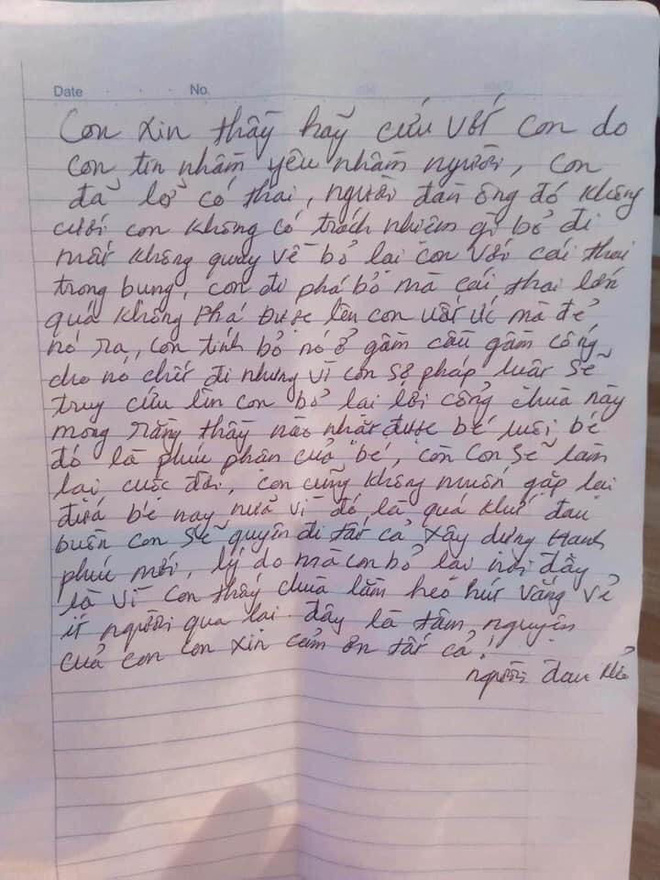 Date . . . No.
Con xin thầy hãy cứu vớt con do
con tin nhầm yêu nhầm người, con
đã lở có thai, người đàn ông đó không
cưới con không có trách nhiệm gì bỏ đi
mất không quay về bỏ lại con với cái thai
trong bụng, con đi phá bỏ mà cái thai lớn
quá không phá được lên con uất ức mà đẻ
nó ra, con tính bỏ nó ở gầm cầu gầm cống
cho nó chết đi nhưng vì con sợ pháp luật sẽ
truy cứu lên con bỏ lại lối cổng chùa này
mong rằng thầy nào nhặt được bé nuôi bé
đó là phúc phần của bé, còn con sẽ làm
lại cuộc đời, con cũng không muốn gặp lại
đứa bé này nửa vì đó là quá khứ đau
buồn con sẽ quyên đi tất cả xây dựng hạnh
phúc mới, lý do mà con bỏ lại nơi đây
là vì con thấy chùa lằm heó hút vắng vẻ
ít người qua lại đây là tâm nguyện
của con con xin cảm ơn tất cả!
người đau khổ